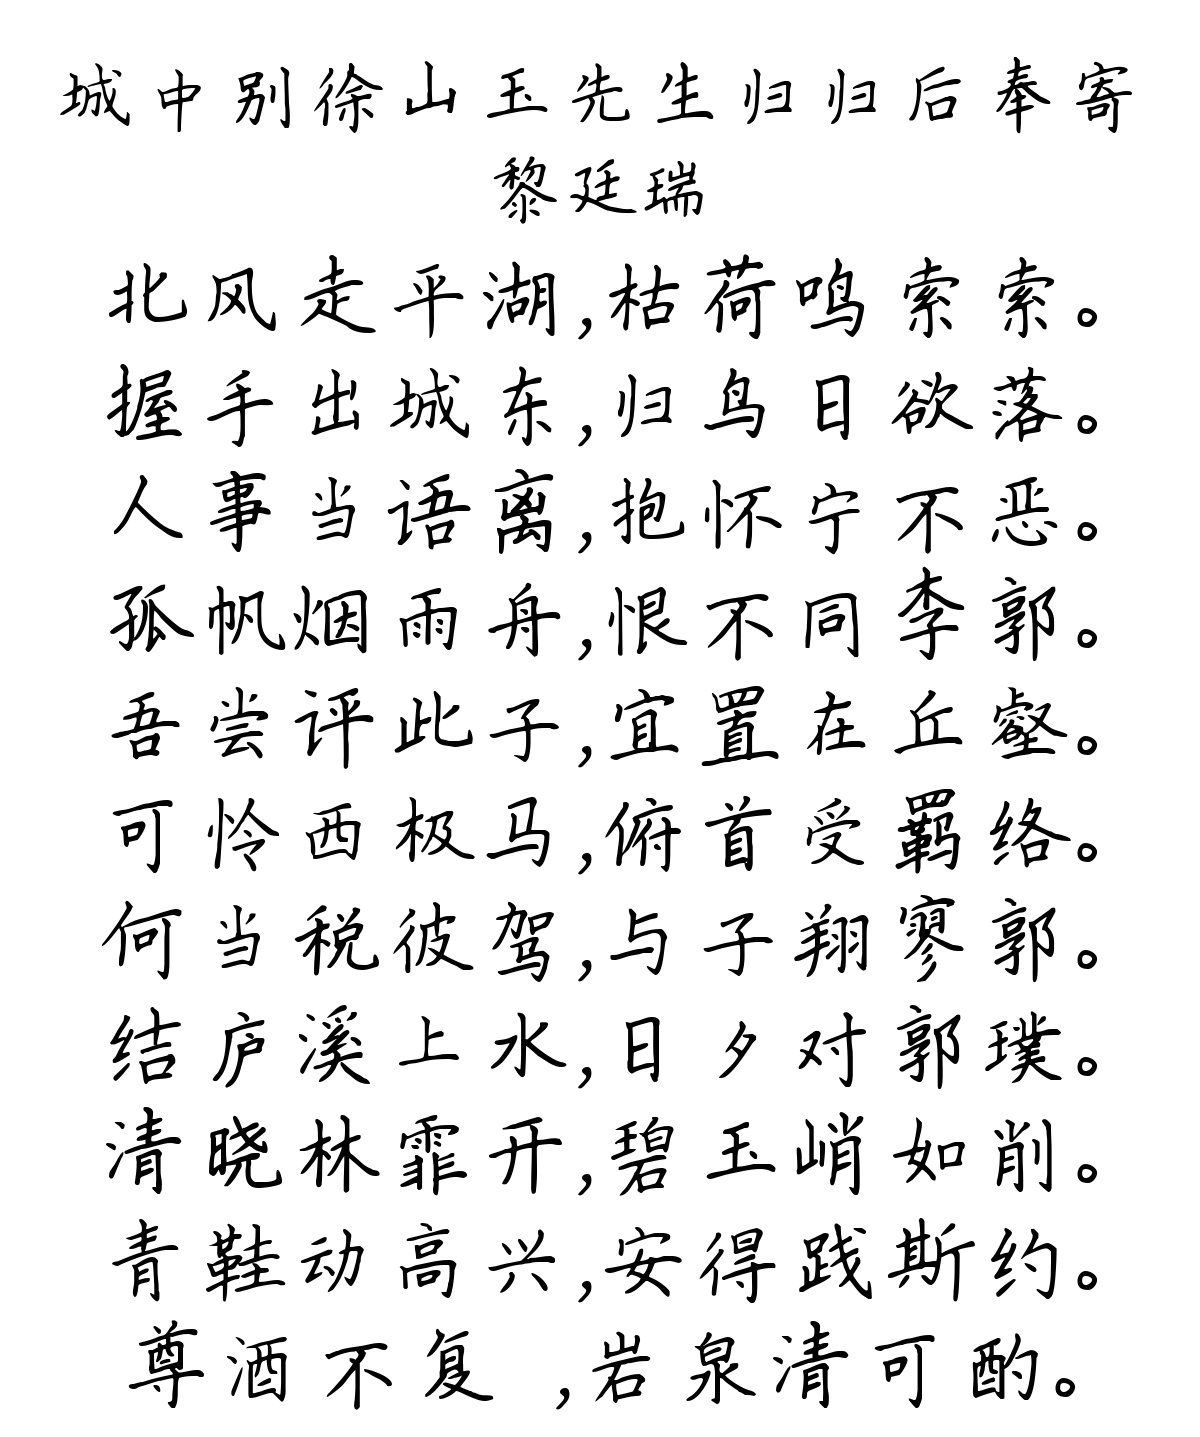 城中别徐山玉先生归归后奉寄
黎廷瑞
北风走平湖,枯荷鸣索索。
握手出城东,归鸟日欲落。
人事当语离,抱怀宁不恶。
孤帆烟雨舟,恨不同李郭。
吾尝评此子,宜置在丘壑。
可怜西极马,俯首受羁络。
何当税彼驾,与子翔寥郭。
结庐溪上水,日夕对郭璞。
清晓林霏开,碧玉峭如削。
青鞋动高兴,安得践斯约。
尊酒不复 ,岩泉清可酌。